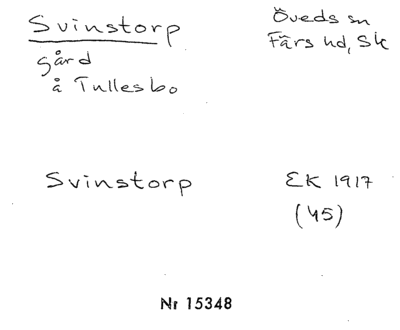 Svinstorp
Öveds sn
gård
Färs hd, Sk
å Tullesbo
Svinstorp
EK 1917
(45)
Nr 15348